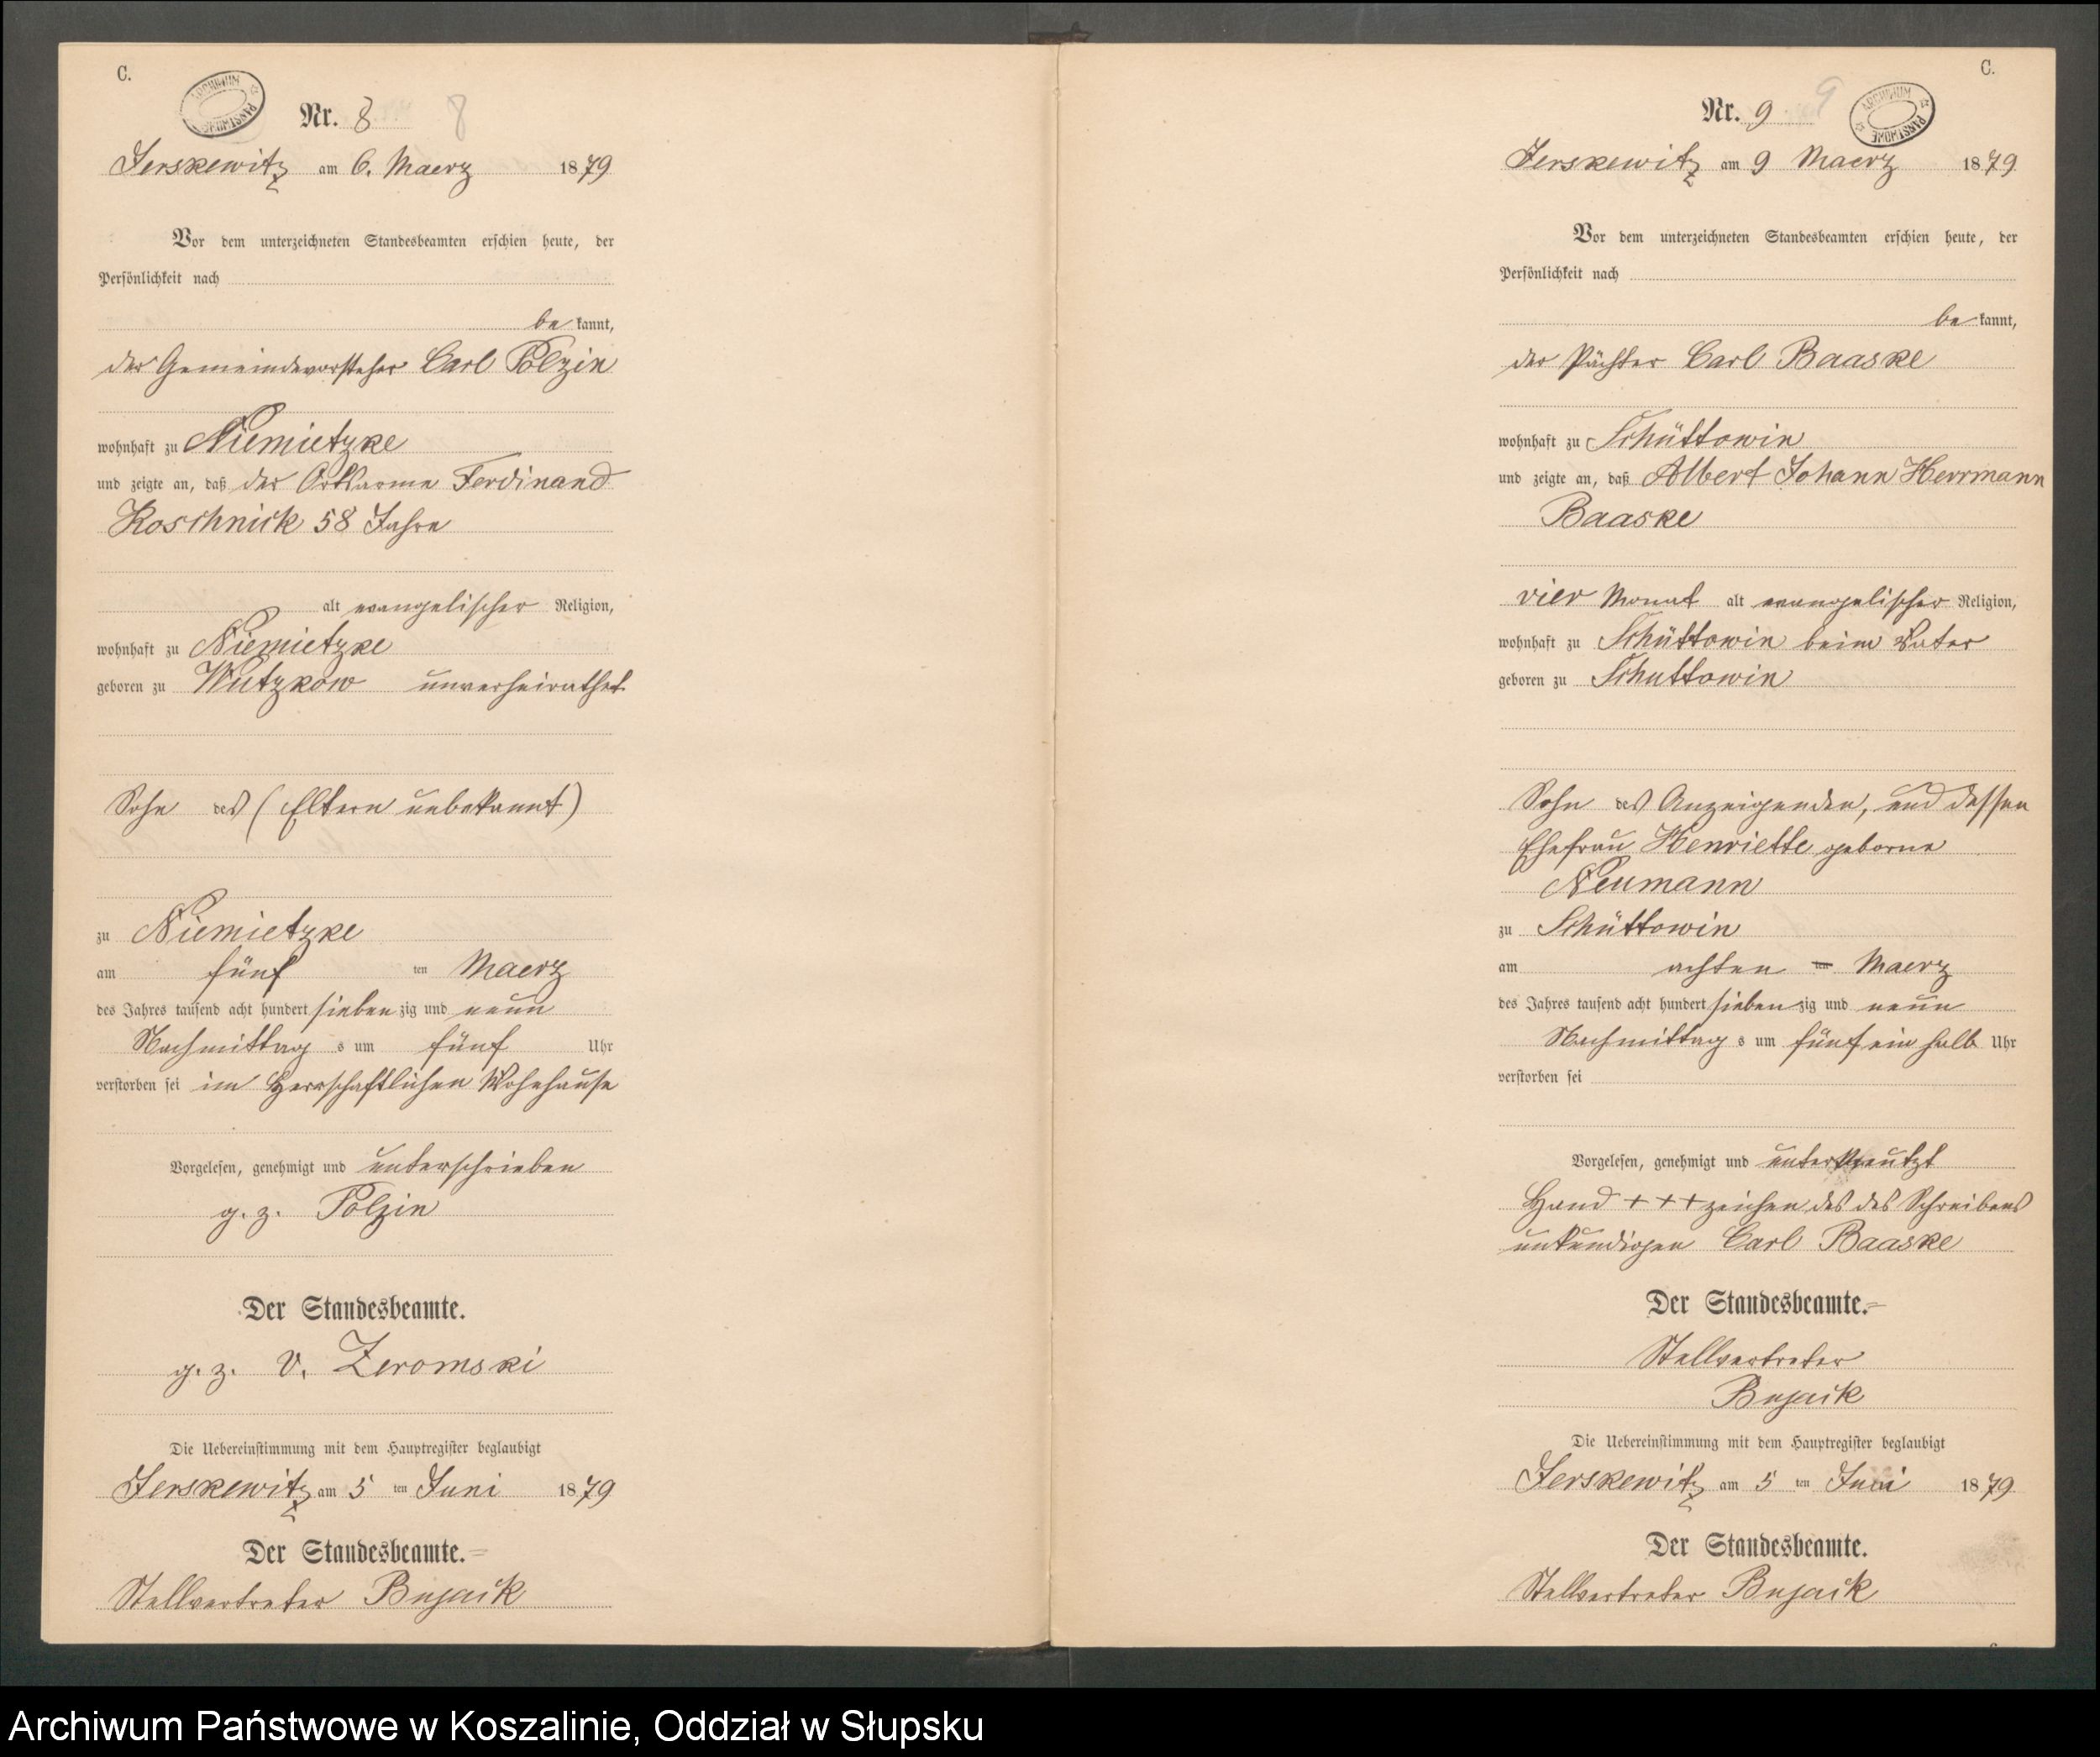 C.
ARCHIWUM PAŃSTWOWE
Nr. 8 8
Jerskewitz am 6. Maerz 1879
Vor dem unterzeichneten Standesbeamten erschien heute, der
Persönlichkeit nach
be kannt,
der Gemeindevorsteher Carl Polzin
wohnhaft zu Niemietzke
und zeigte an, daß der Ortsarme Ferdinand
Koschnick 58 Jahre
alt evangelischer Religion,
wohnhaft zu Niemietzke
geboren zu Wutzkow unverheirathet
Sohn des (Eltern unbekannt)
zu Niemietzke
am fünf ten Maerz
des Jahres tausend acht hundert siebenzig und neun
Nachmittag s um fünf Uhr
verstorben sei im Herrschaftlichen Wohnhause
Vorgelesen, genehmigt und unterschrieben
g. z. Polzin
Der Standesbeamte.
g. z. v. Zeromski
Die Uebereinstimmung mit dem Hauptregister beglaubigt
Jerskewitz am 5 ten Juni 1879
Der Standesbeamte.
Stellvertreter Bujack
C.
Nr. 9 9
ARCHIWUM PAŃSTWOWE
Jerskewitz am 9 Maerz 1879
Vor dem unterzeichneten Standesbeamten erschien heute, der
Persönlichkeit nach
be kannt,
der Pächter Carl Baaske
wohnhaft zu Schüttowin
und zeigte an, daß Albert Johann Herrmann
Baaske
vier Monat alt evangelischer Religion,
wohnhaft zu Schüttowin beim Vater
geboren zu Schuttowin
Sohn des Anzeigenden, und dessen
Ehefrau Henriette geborne
Neumann
zu Schüttowin
am achten ten Maerz
des Jahres tausend acht hundert siebenzig und neun
Nachmittag s um fünf ein halb Uhr
verstorben sei
Vorgelesen, genehmigt und unterkreutzt
Hand +++ zeichen des des Schreibens
unkundigen Carl Baaske
Der Standesbeamte.
Stellvertreter
Bujack
Die Uebereinstimmung mit dem Hauptregister beglaubigt
Jerskewitz am 5 ten Juni 1879
Der Standesbeamte.
Stellvertreter Bujack
Archiwum Państwowe w Koszalinie, Oddział w Słupsku